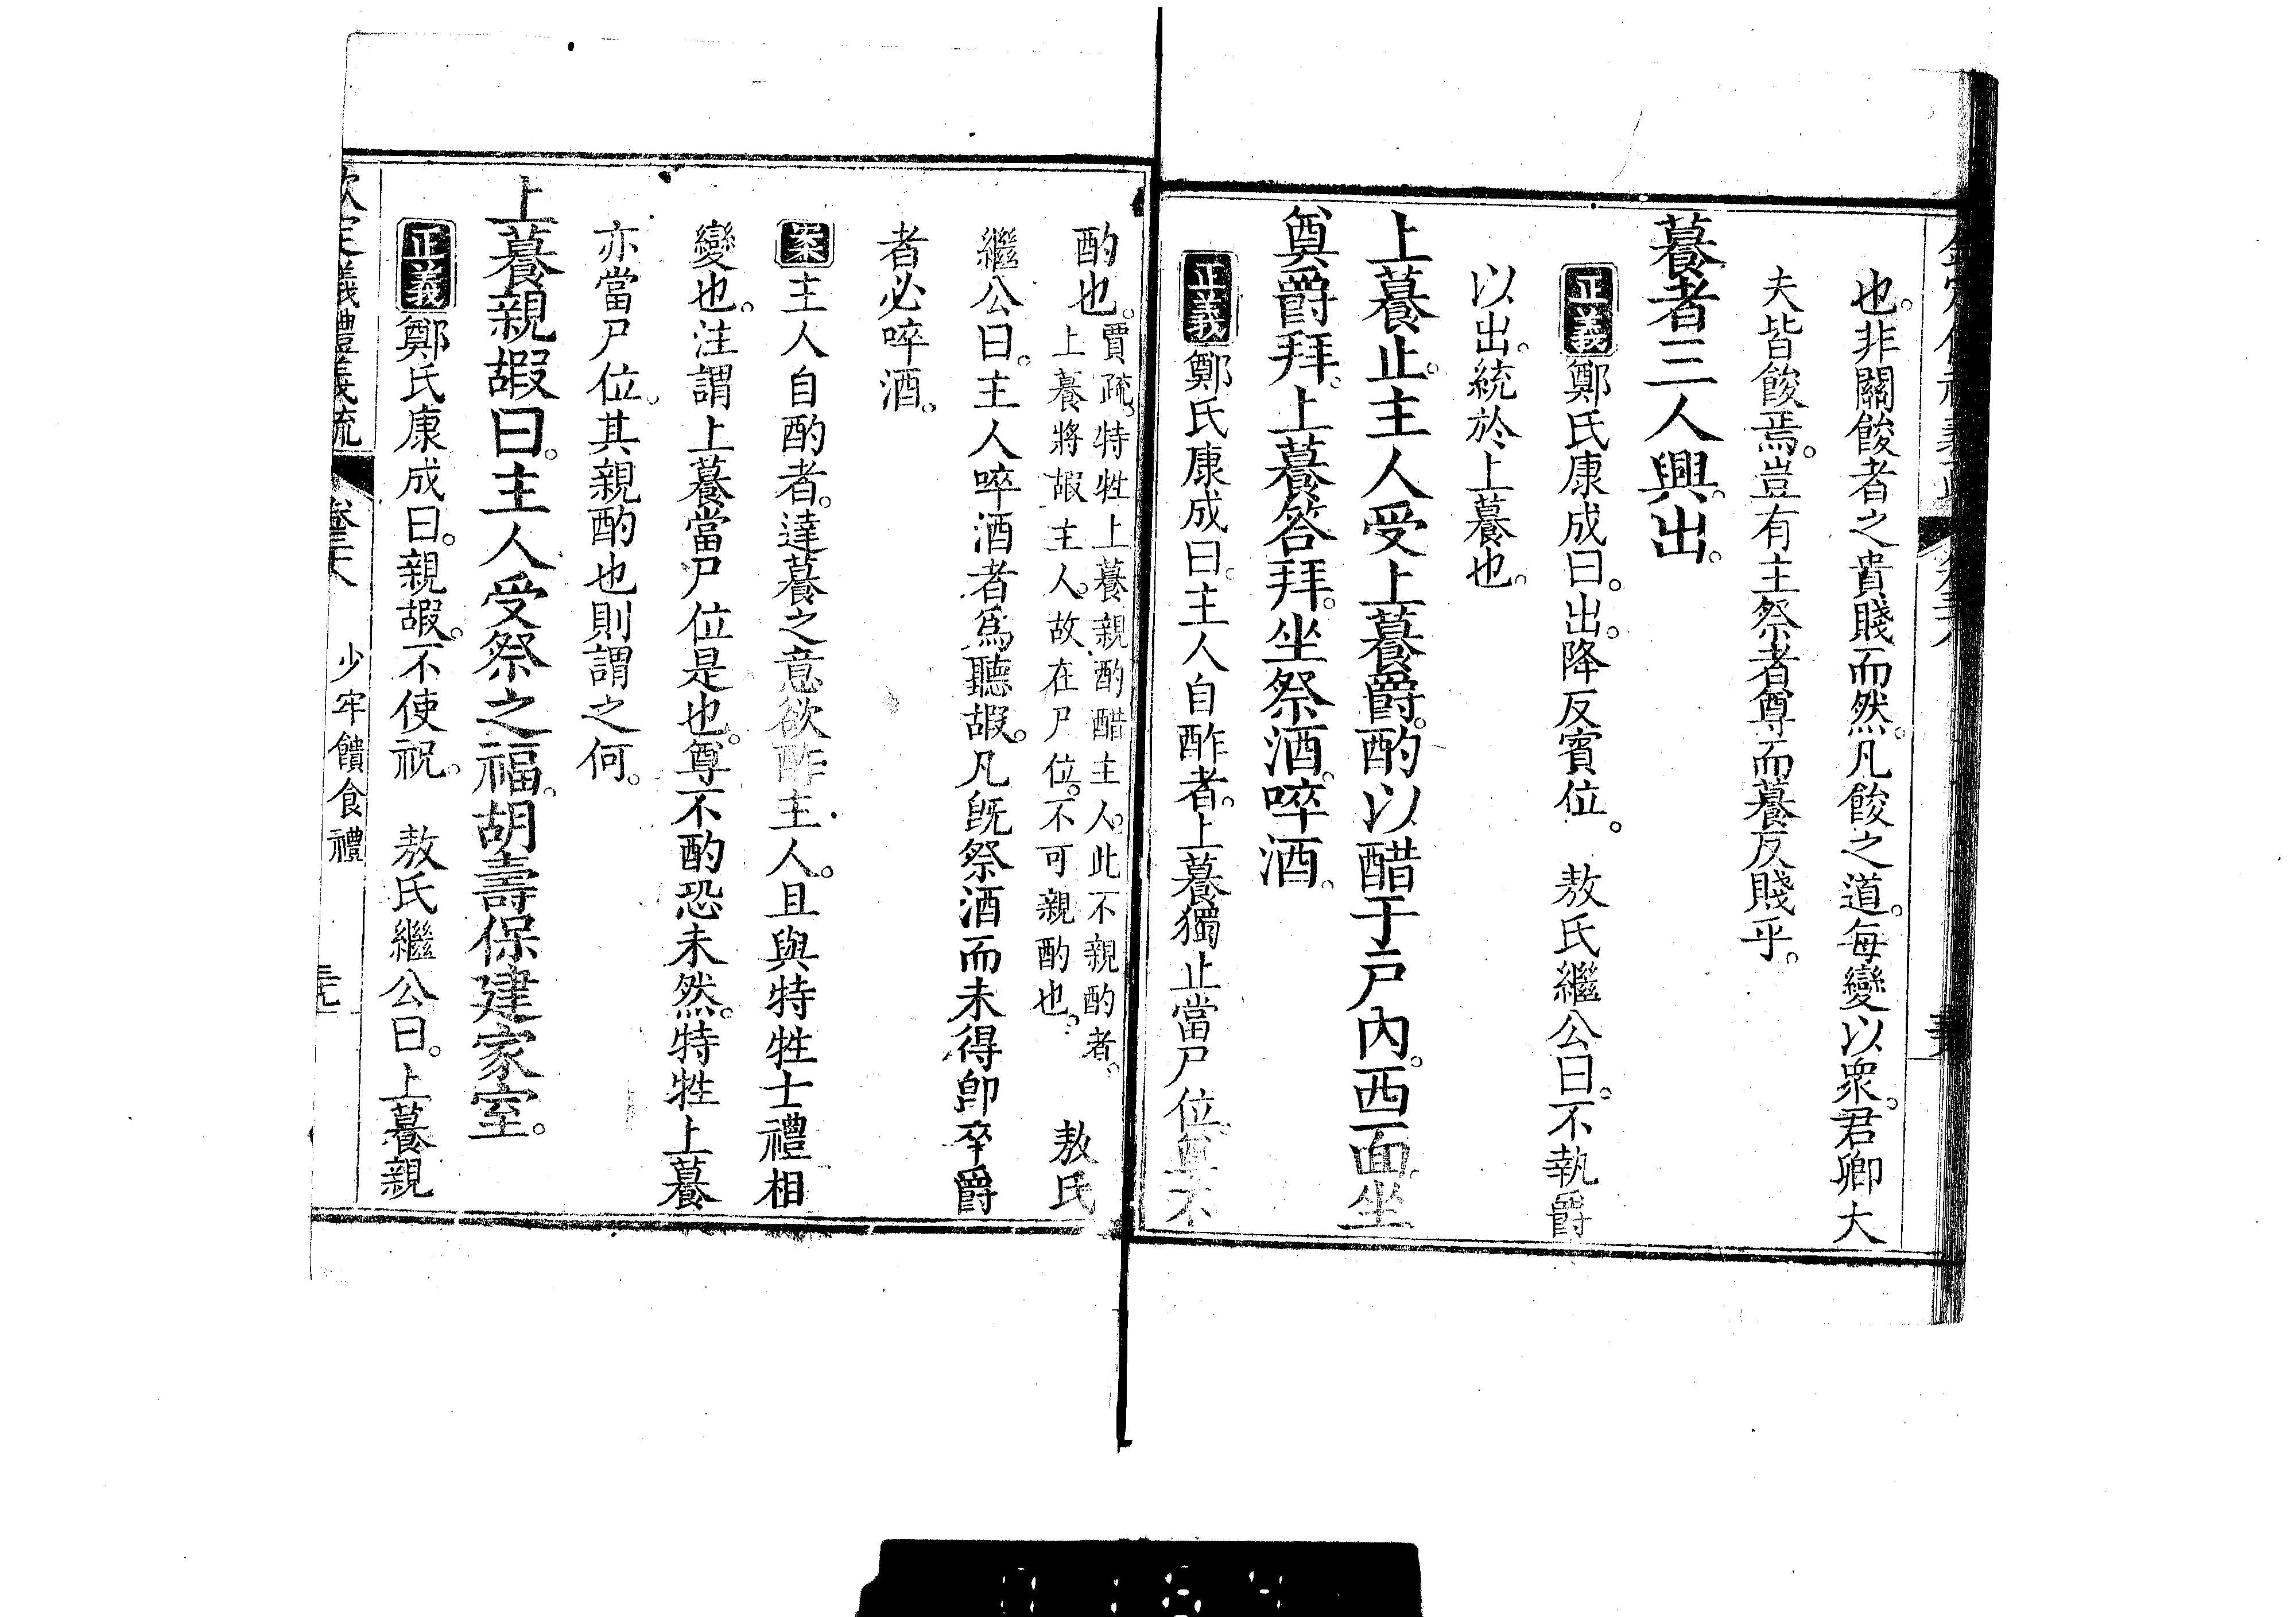 也。非關餕者之貴賤而然。凡餕之道。每變以衆。君卿大
夫皆餕焉。豈有主祭者尊而䕩反賤乎。
䕩者三人興。出。
正義鄭氏康成曰。出。降反賓位。 敖氏繼公曰。不執爵
以出。統於上䕩也。
上䕩止。主人受上䕩爵。酌以醋于戶內。西面坐
奠爵拜。上䕩答拜。坐祭酒。啐酒。
正義鄭氏康成曰。主人自酢者。上䕩獨止當尸位。尊不
酌也。賈疏。特牲上䕩親酌醋主人。此不親酌者。
上䕩將嘏主人。故在尸位。不可親酌也。 敖氏
繼公曰。主人啐酒者爲聽嘏。凡旣祭酒而未得卽卒爵
者必啐酒。
案主人自酌者。達䕩之意欲酢主人。且與特牲士禮相
變也。注謂上䕩當尸位是也。尊不酌恐未然。特牲上䕩
亦當尸位。其親酌也則謂之何。
上䕩親嘏曰。主人受祭之福。胡壽保建家室。
正義鄭氏康成曰。親嘏。不使祝。 敖氏繼公曰。上䕩親
欽定儀禮義疏 少牢饋食禮